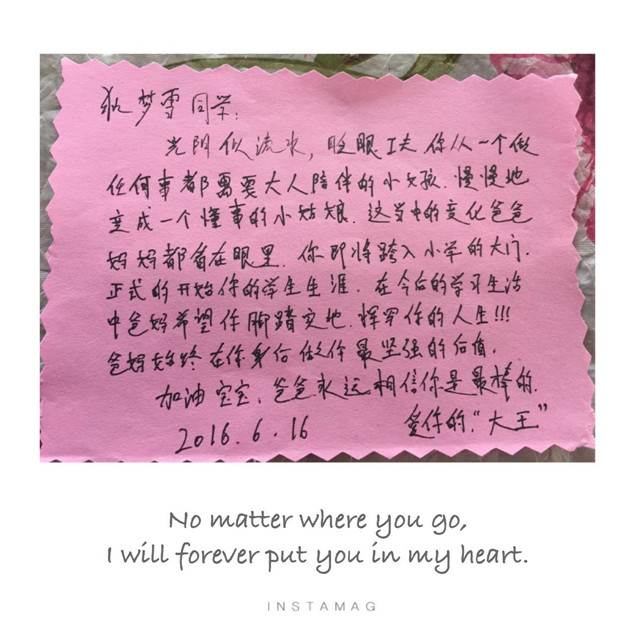 狄梦雪同学:
光阴似流水,眨眼工夫你从一个做
任何事都需要大人陪伴的小女孩.慢慢地
变成一个懂事的小姑娘.这当中的变化爸爸
妈妈都看在眼里.你即将跨入小学的大门.
正式的开始你的学生生涯.在今后的学习生活
中爸妈希望你脚踏实地.挥罕你的人生!!!
爸妈始终在你身后做你最坚强的后盾.
加油宝宝.爸爸永远相信你是最棒的.
2016.6.16 爱你的."大王"
No matter where you go,
I will forever put you in my heart.
INSTAMAG